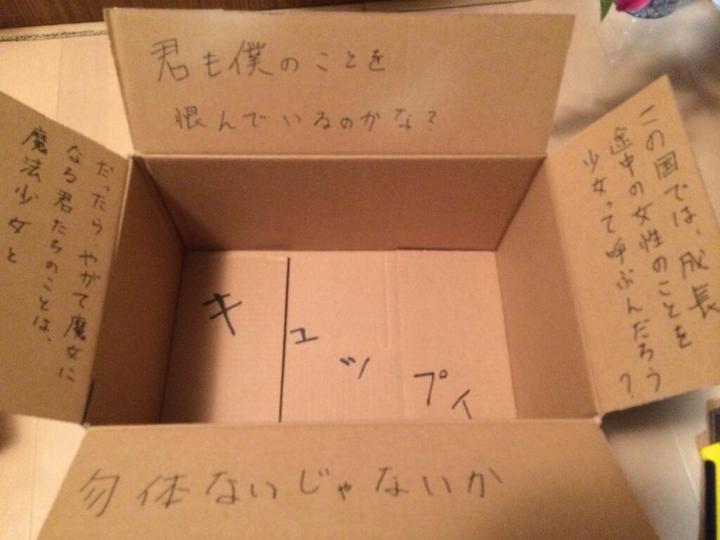 君も僕のことを
恨んでいるのかな?
この国では、成長
途中の女性のことを
少女って呼ぶんだろう?
だったら、やがて魔女に
なる君たちのことは、
魔法少女と
キュップイ
勿体ないじゃないか